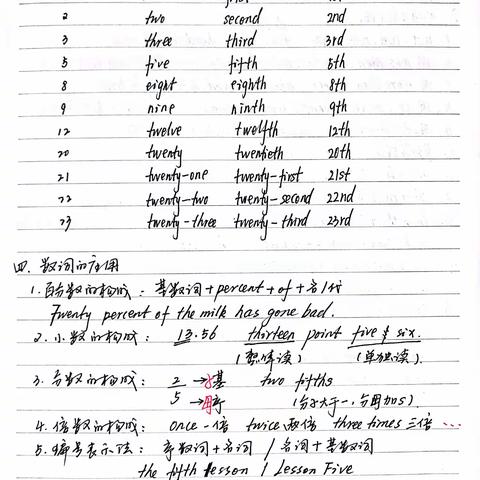 2 two second 2nd
3 three third 3rd
5 five fifth 5th
8 eight eighth 8th
9 nine ninth 9th
12 twelve twelfth 12th
20 twenty twentieth 20th
21 twenty-one twenty-first 21st
22 twenty-two twenty-second 22nd
23 twenty-three twenty-third 23rd
四. 数词的应用
1. 百分数的构成: 基数词+percent+of+名/代
Twenty percent of the milk has gone bad.
2. 小数的构成: 13.56 thirteen point five & six.
(整体读) (单独读)
3. 分数的构成: 2 →子基 two fifths
5 →母序 (分子大于一,分母加s)
4. 倍数的构成: once 一倍 twice 两倍 three times 三倍 ...
5. 编号表示法: 序数词+名词 / 名词+基数词
the fifth lesson / Lesson Five